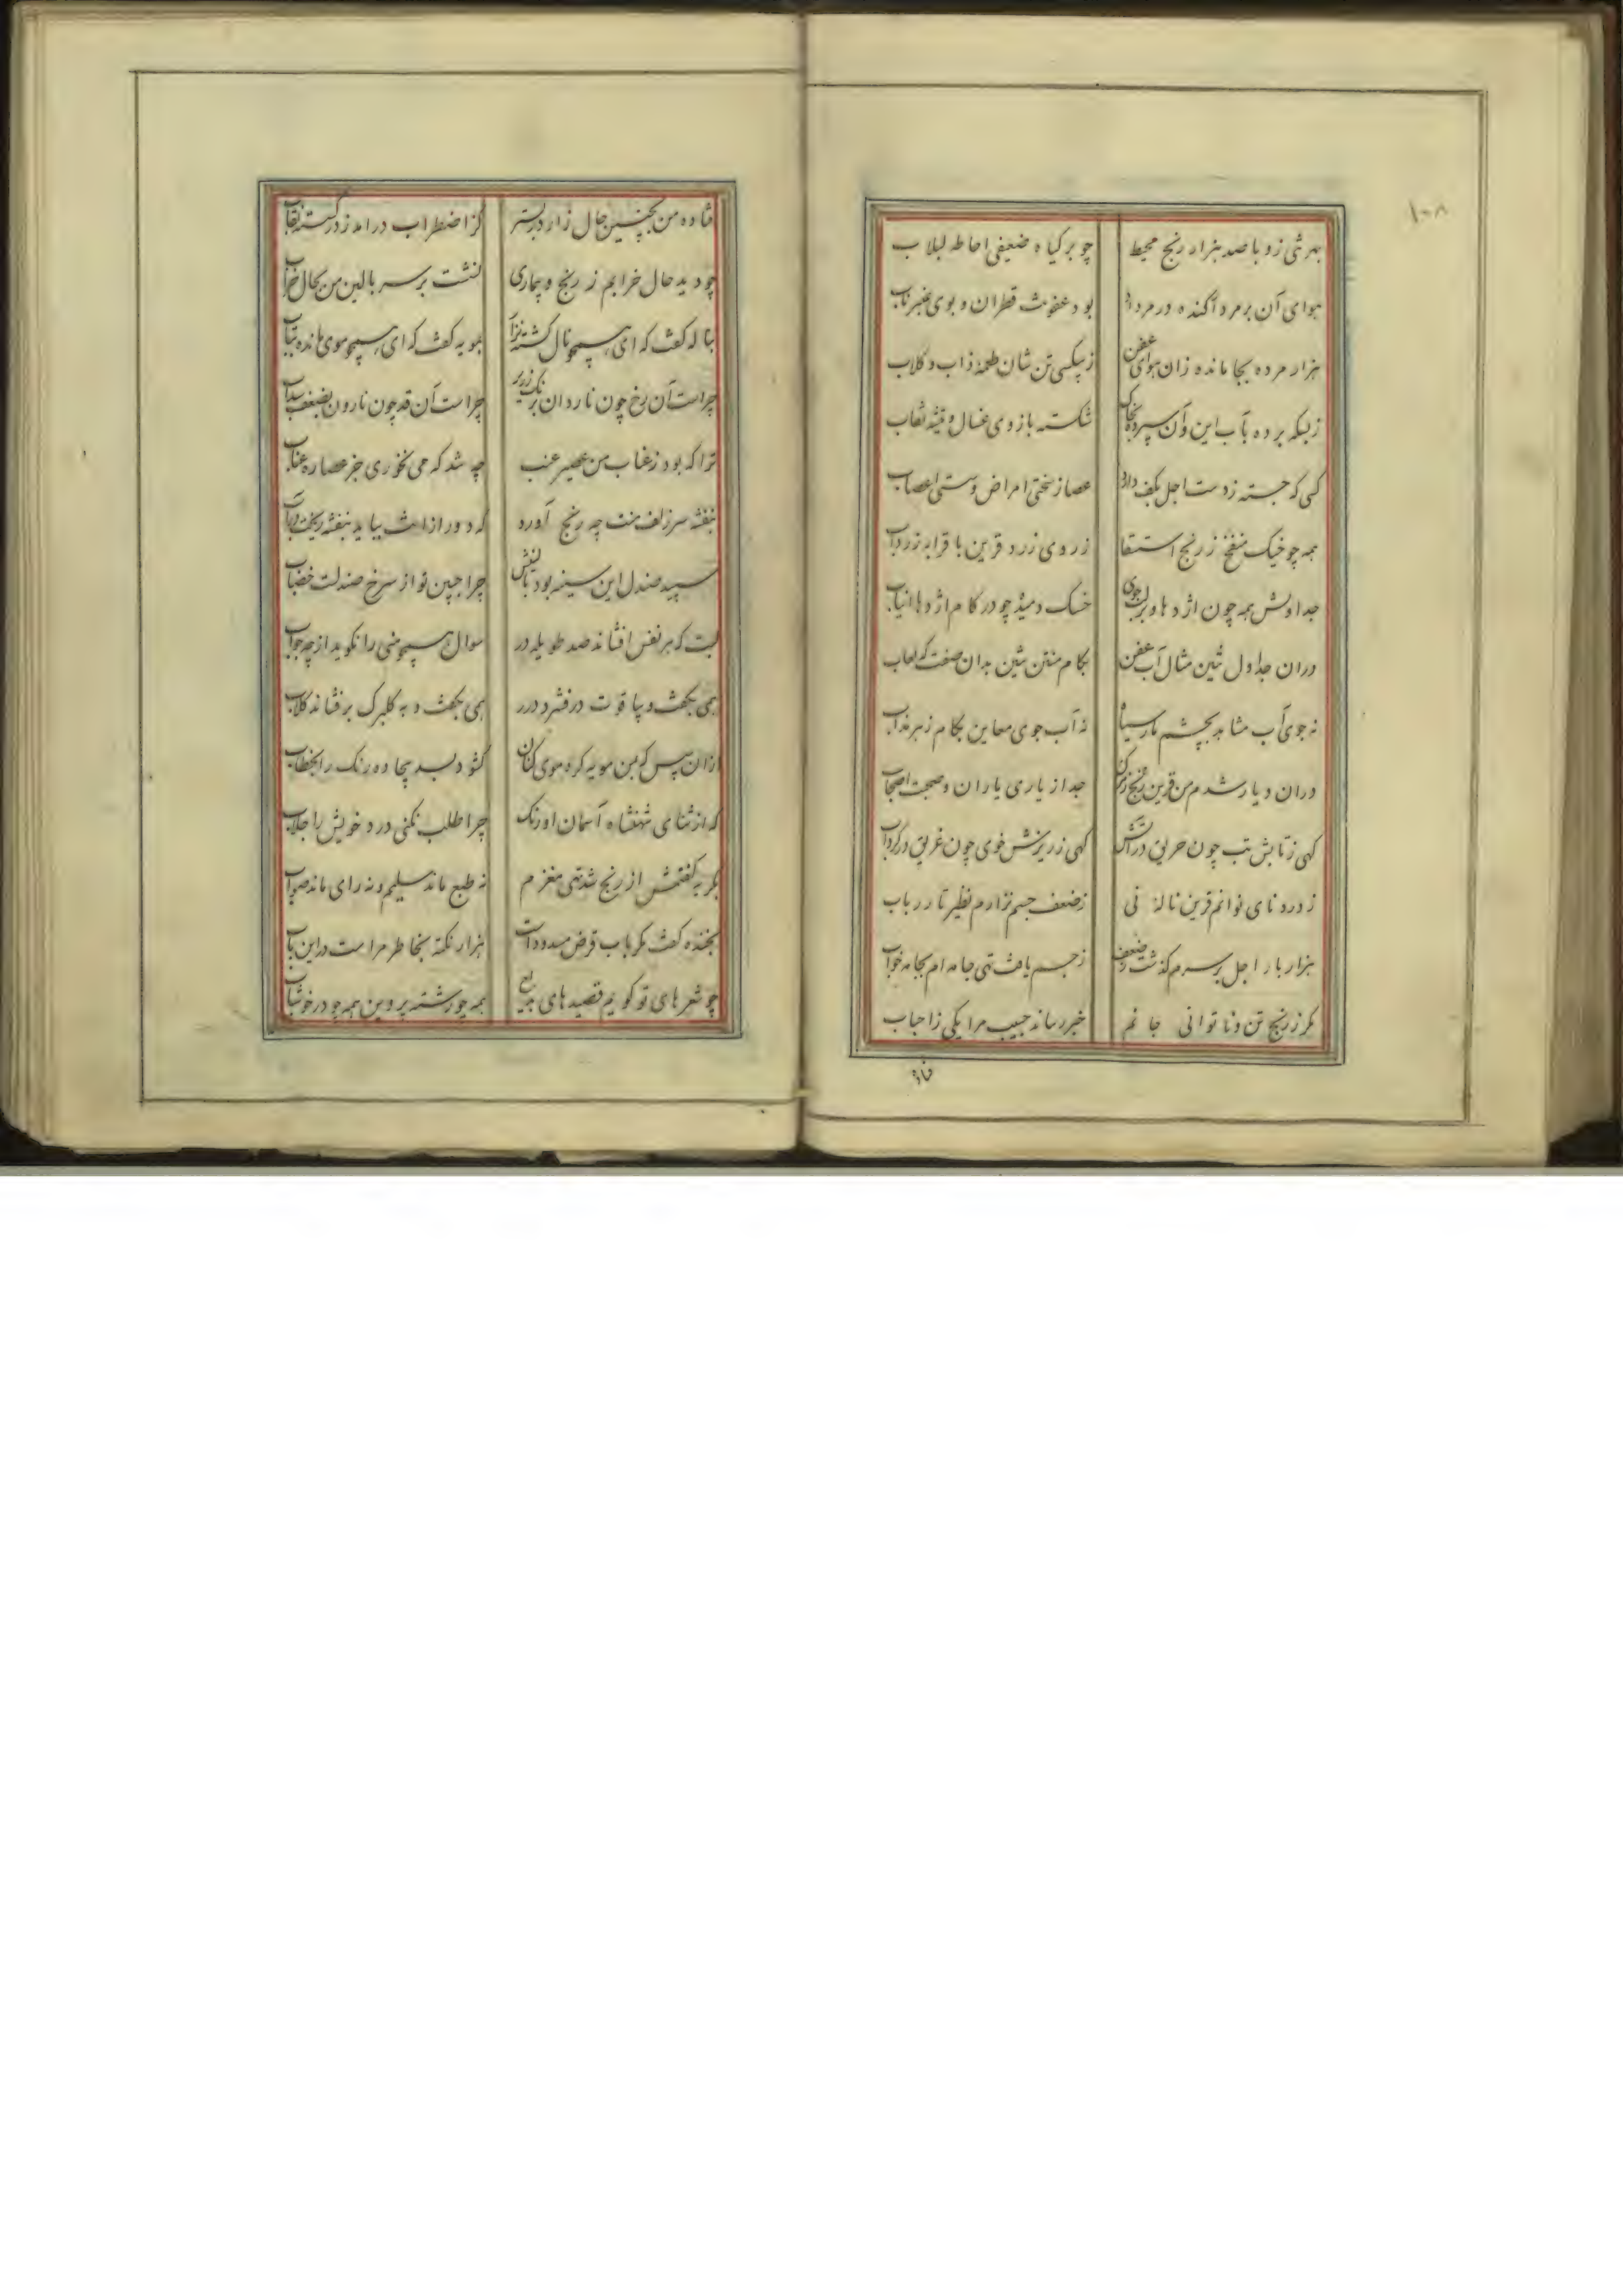 ۱۰۸
بهر تنی زد و با صد هزار رنج محیط چو بر گیاه ضعیفی احاطه لبلاب
هوای آن بر مرد آکنده در مرداد بود عفونت قطران و بوی عنبر ناب
هزار مرده بجا مانده زان هوای عفن ز بیکسی تن شان طعمهٔ ذئاب و کلاب
ز بسکه برده بآب این و آن سپرده بخاک شکسته بازوی غسال و تیشه نقاب
کسی که جسته ز دست اجل بکف دارد عصا ز سختی امراض و سستی اعصاب
همه چو خیک منفخ ز رنج استسقا ز روی زرد قرین با قرابه زرداب
جداولش همه چون اژدها و بر لب جوی خسک دمیده چو در کام اژدها انیاب
در ان جداول تنین مثال آب عفن بکام منتن تنین بدان صفت که لعاب
نه جوی آب مشابه بچشم مار سیاه نه آب جوی معاین بکام زهر مذاب
در ان دیار شدم من قرین رنج جدا از یاری یاران و صحبت اصحاب
کهی ز تابش تب چون حریق در آتش کهی ز ریزش خوی چون غریق در کرداب
ز درد نای نوانم قرین نالهٔ نی ز ضعف جسم نزارم نظیر تار رباب
هزار بار اجل بر سرم کذشت و ز ضعف ز جسم یافت تهی جامه ام بجامه خواب
مکر ز رنج تن و ناتوانی جانم خبر رساند حبیب مرا یکی ز احباب
فتاده
فتاده من بچنین حال زار در بستر کز اضطراب درامد ز در کسسته نقاب
چو دید حال خرابم ز رنج و بیماری نشست بر سر بالین من بحال خراب
بناله کفت که ای همچو نال کشته نزار بمویه کفت که ای همچو موی مانده بتاب
چراست آن رخ چون ناردان برنک زریر چراست آن قد چون نارون بضعف سداب
ترا که بود ز عناب من عصیر عنب چه شد که می نخوری جز عصاره عناب
بنفشه سر زلف منت چه رنج آورد که دور از انت بباید بنفشه ریخت در آب
سپید صندل این سینه بود بالینش چرا جبین تو از سرخ صندلت خضاب
لبت که بر نفس افشاند صد طویله در سوال همچو منی را نکوید از چه جواب
همی بکفت و بیاقوت در فشرد درر همی بکفت و به کلبرک بر فشاند کلاب
ازان سپس که بمن مویه کرد موی کنان کشود بسد بیجاده رنک را بخطاب
که از ثنای شهنشاه آسمان اورنک چرا طلب نکنی درد خویش را جلاب
بکریه کفتمش از رنج شد تهی مغزم نه طبع ماند سلیم و نه رای ماند صواب
بخنده کفت مکر باب قرض مسدود است هزار نکته بخاطر مراست در این باب
چو شعرهای تو کویم قصیدهای بدیع همه چو رشته پروین همه چو در خوشاب